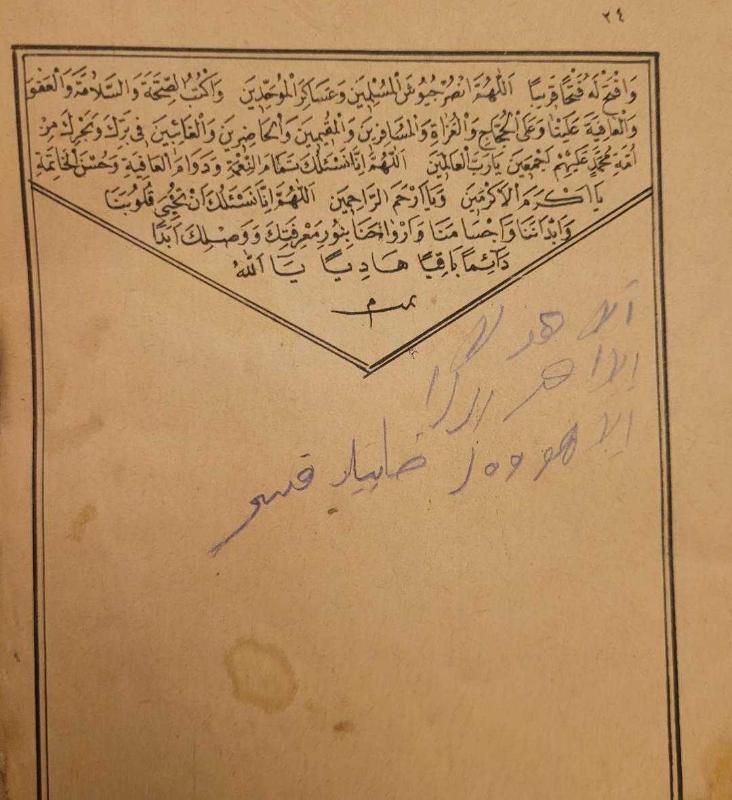 ٢٤
وَافْتَحْ لَهُ فَتْحًا قَرِيبًا اَللّٰهُمَّ انْصُرْ جُيُوشَ الْمُسْلِمِينَ وَعَسَاكِرَ الْمُوَحِّدِينَ وَاكْتُبِ الصِّحَّةَ وَالسَّلَامَةَ وَالْعَفْوَ
وَالْعَافِيَةَ عَلَيْنَا وَعَلَى الْحُجَّاجِ وَالْغُزَاةِ وَالْمُسَافِرِينَ وَالْمُقِيمِينَ وَالْحَاضِرِينَ وَالْغَائِبِينَ فِى بَرِّكَ وَبَحْرِكَ مِنْ
اُمَّةِ مُحَمَّدٍ عَلَيْهِمْ اَجْمَعِينَ يَارَبَّ الْعَالَمِينَ اَللّٰهُمَّ اِنَّا نَسْئَلُكَ تَمَامَ النِّعْمَةِ وَدَوَامَ الْعَافِيَةِ وَحُسْنَ الْخَاتِمَةِ
يَا اَكْرَمَ الْاَكْرَمِينَ وَيَا اَرْحَمَ الرَّاحِمِينَ اَللّٰهُمَّ اِنَّا نَسْئَلُكَ اَنْ تُحْيِىَ قُلُوبَنَا
وَاَبْدَانَنَا وَاَجْسَامَنَا وَاَرْوَاحَنَا بِنُورِ مَعْرِفَتِكَ وَوَصْلِكَ اَبَدًا
دَآئِمًا بَاقِيًا هَادِيًا يَا اَللّٰهُ